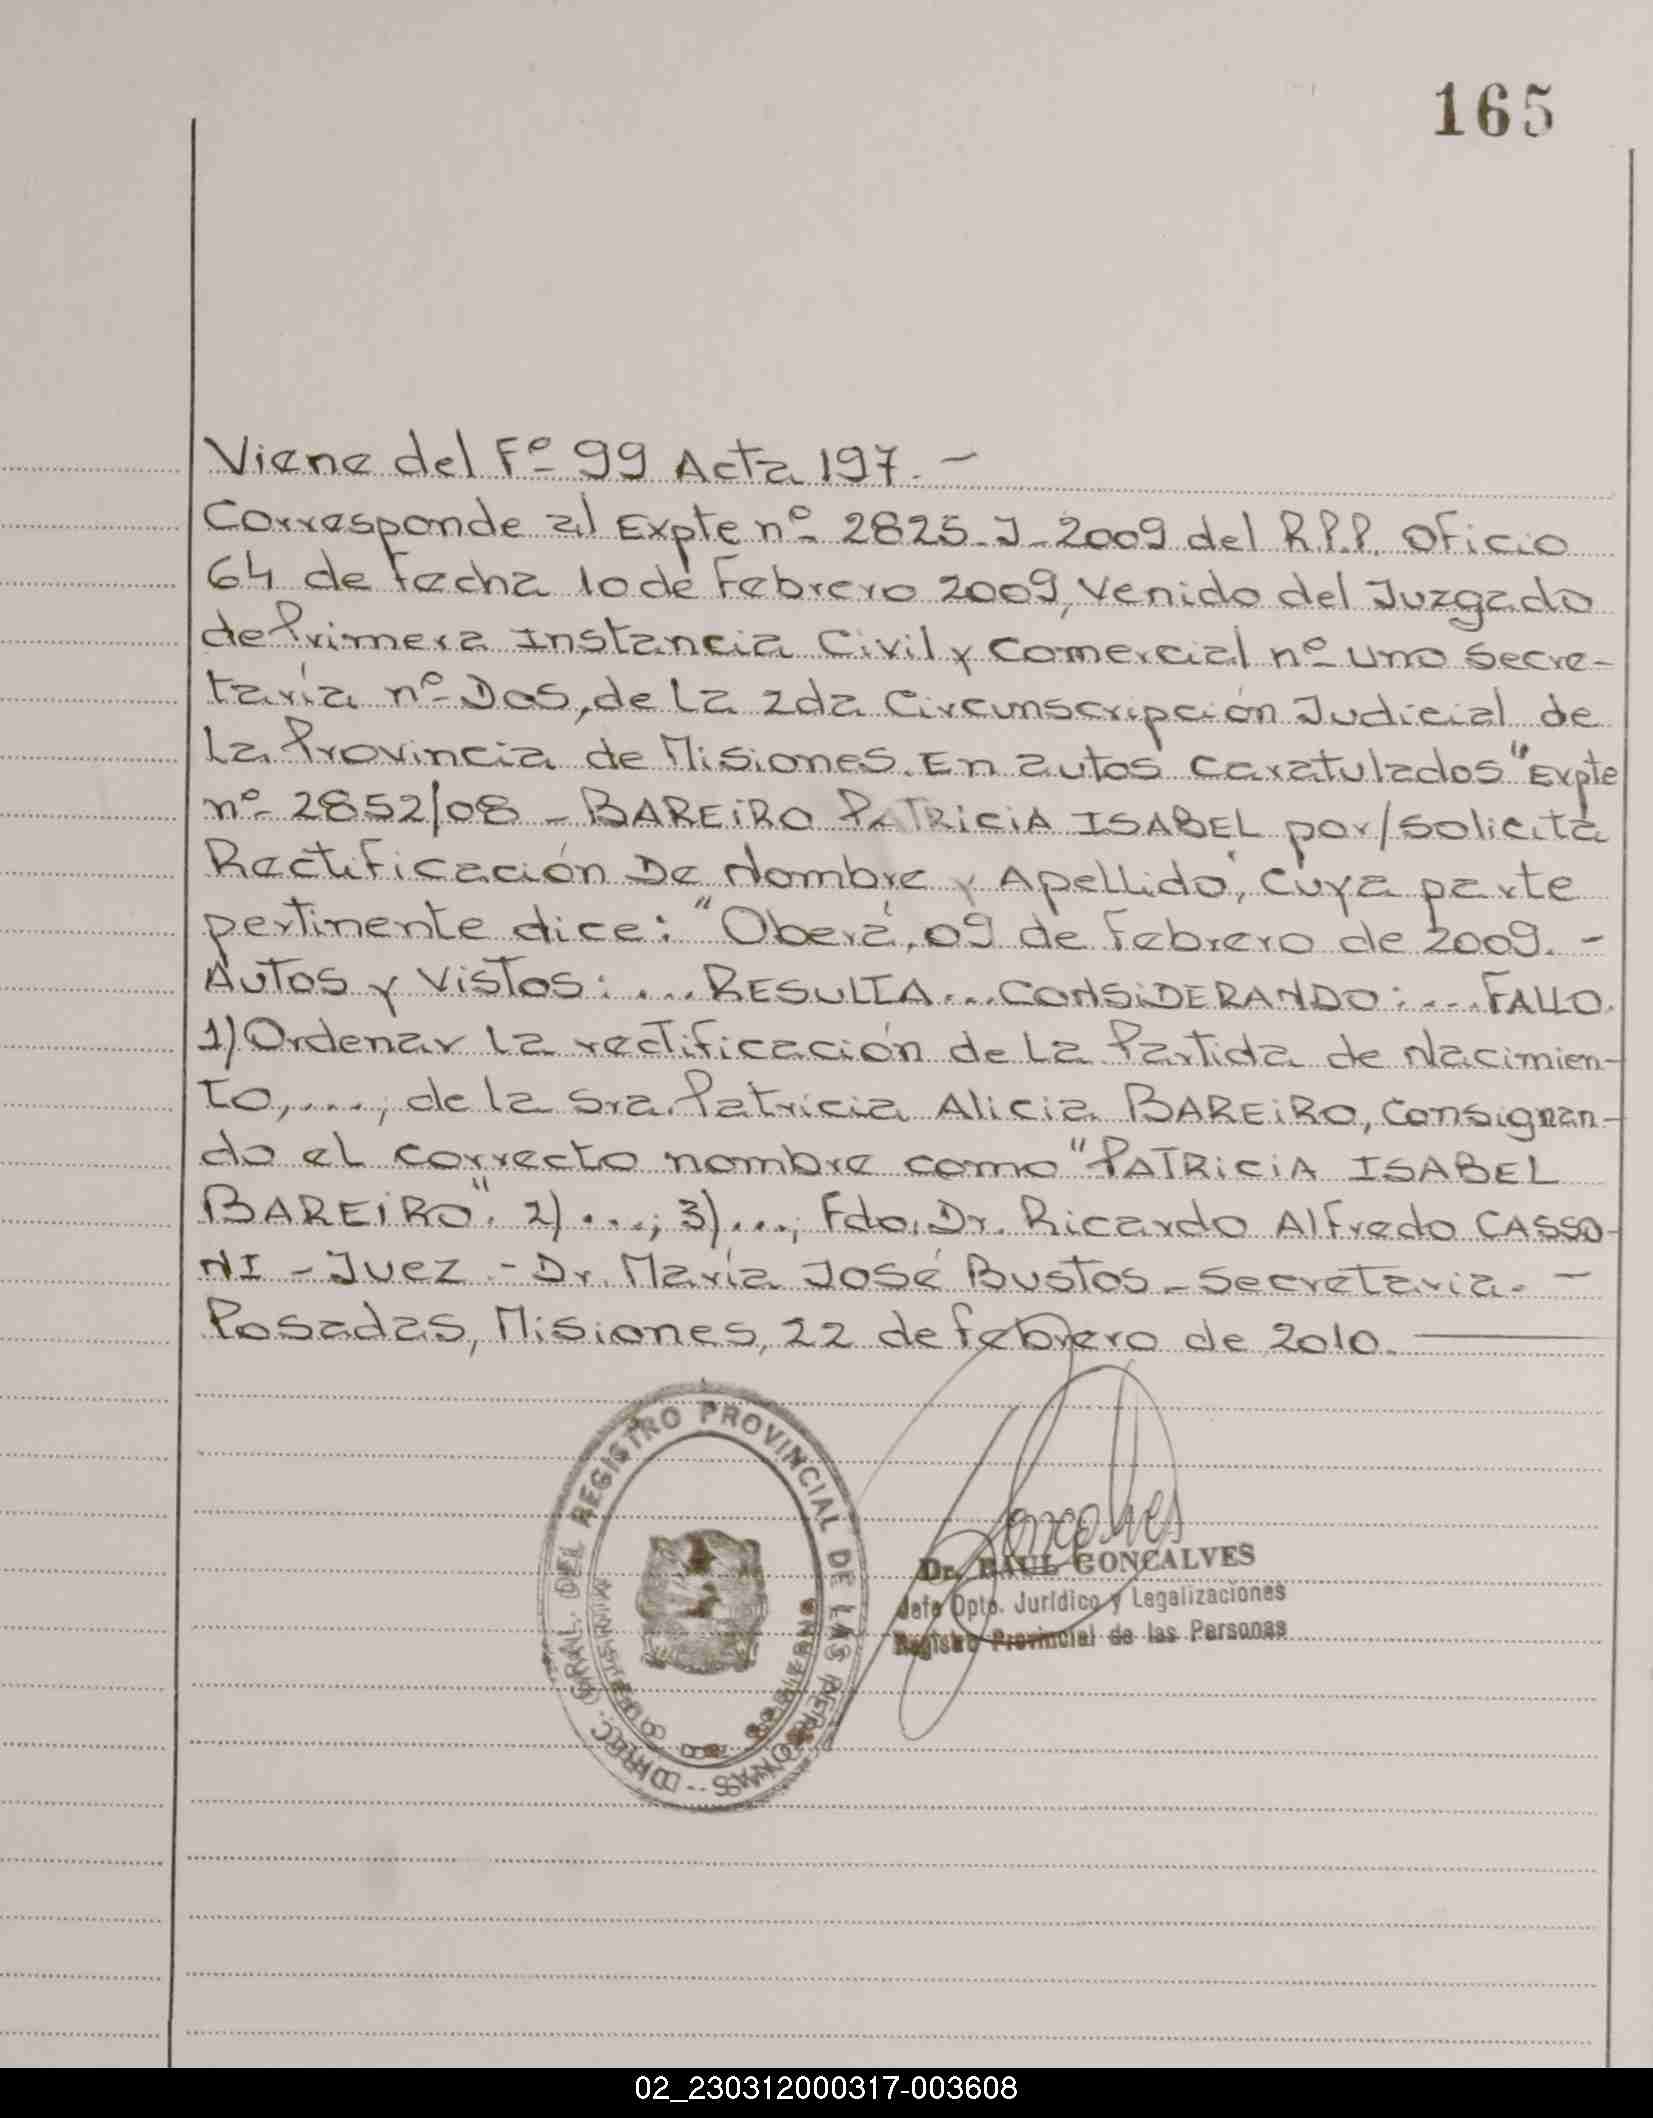 165
Viene del Fº 99 Acta 197.-
Corresponde al Expte nº 2825-J-2009 del R.P.P. Oficio
64 de fecha 10 de Febrero 2009, Venido del Juzgado
de Primera Instancia Civil y Comercial nº uno Secre-
taría nº Dos, de La 2da Circunscripción Judicial de
La Provincia de Misiones. En autos caratulados "Expte
nº 2852/08 - BAREIRO PATRICIA ISABEL por/solicita
Rectificación De Nombre y Apellido", Cuya parte
pertinente dice: "Oberá, 09 de Febrero de 2009.-
Autos y Vistos: ... RESULTA ... CONSIDERANDO: .... FALLO.
1) Ordenar la rectificación de La Partida de Nacimien-
to, ...., de la Sra. Patricia Alicia BAREIRO, Consignan-
do el correcto nombre como "PATRICIA ISABEL
BAREIRO". 2) ...; 3) ..., Fdo. Dr. Ricardo Alfredo CASSO-
NI - Juez.- Dr. María José Bustos - Secretaria.-
Posadas, Misiones, 22 de febrero de 2010.
DIREC. GRAL. DEL REGISTRO PROVINCIAL DE LAS PERSONAS
Goncalves
Dr. RAUL GONCALVES
Jefe Dpto. Jurídico y Legalizaciones
Registro Provincial de las Personas
02_230312000317-003608